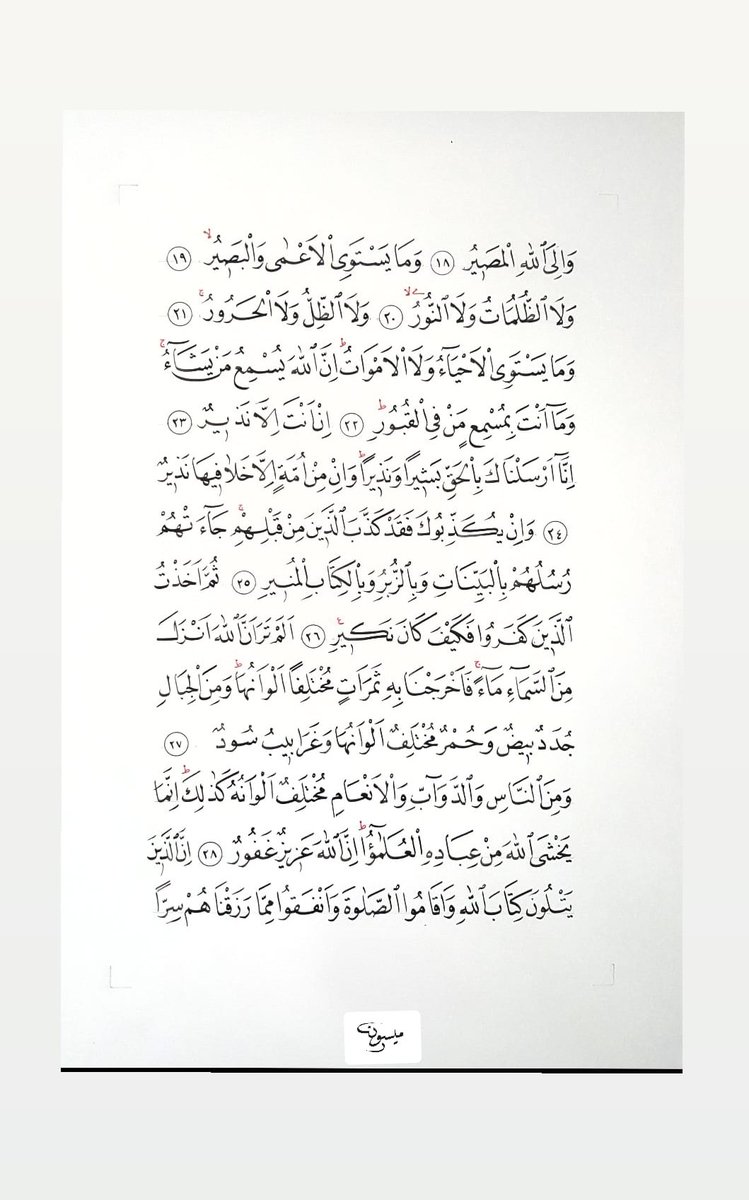 وَاِلَى اللّٰهِ الْمَصٖيرُ ﴿١٨﴾ وَمَا يَسْتَوِى الْاَعْمٰى وَالْبَصٖيرُ ۙ ﴿١٩﴾
وَلَا الظُّلُمَاتُ وَلَا النُّورُ ۙ ﴿٢٠﴾ وَلَا الظِّلُّ وَلَا الْحَرُورُ ۚ ﴿٢١﴾
وَمَا يَسْتَوِى الْاَحْيَآءُ وَلَا الْاَمْوَاتُ ؕ اِنَّ اللّٰهَ يُسْمِعُ مَنْ يَشَآءُ ۚ
وَمَآ اَنْتَ بِمُسْمِعٍ مَنْ فِى الْقُبُورِ ؕ ﴿٢٢﴾ اِنْ اَنْتَ اِلَّا نَذٖيرٌ ﴿٢٣﴾
اِنَّآ اَرْسَلْنَاكَ بِالْحَقِّ بَشٖيراً وَنَذٖيراً ؕ وَاِنْ مِنْ اُمَّةٍ اِلَّا خَلَا فٖيهَا نَذٖيرٌ
﴿٢٤﴾ وَاِنْ يُكَذِّبُوكَ فَقَدْ كَذَّبَ الَّذٖينَ مِنْ قَبْلِهِمْ ۚ جَآءَتْهُمْ
رُسُلُهُمْ بِالْبَيِّنَاتِ وَبِالزُّبُرِ وَبِالْكِتَابِ الْمُنٖيرِ ﴿٢٥﴾ ثُمَّ اَخَذْتُ
الَّذٖينَ كَفَرُوا فَكَيْفَ كَانَ نَكٖيرِ ۚ ﴿٢٦﴾ اَلَمْ تَرَ اَنَّ اللّٰهَ اَنْزَلَ
مِنَ السَّمَآءِ مَآءً ۚ فَاَخْرَجْنَا بِهٖ ثَمَرَاتٍ مُخْتَلِفاً اَلْوَانُهَا ؕ وَمِنَ الْجِبَالِ
جُدَدٌ بٖيضٌ وَحُمْرٌ مُخْتَلِفٌ اَلْوَانُهَا وَغَرَابٖيبُ سُودٌ ﴿٢٧﴾
وَمِنَ النَّاسِ وَالدَّوَآبِّ وَالْاَنْعَامِ مُخْتَلِفٌ اَلْوَانُهُ كَذٰلِكَ ؕ اِنَّمَا
يَخْشَى اللّٰهَ مِنْ عِبَادِهِ الْعُلَمٰٓؤُا ؕ اِنَّ اللّٰهَ عَزٖيزٌ غَفُورٌ ﴿٢٨﴾ اِنَّ الَّذٖينَ
يَتْلُونَ كِتَابَ اللّٰهِ وَاَقَامُوا الصَّلٰوةَ وَاَنْفَقُوا مِمَّا رَزَقْنَاهُمْ سِرّاً
ميسون